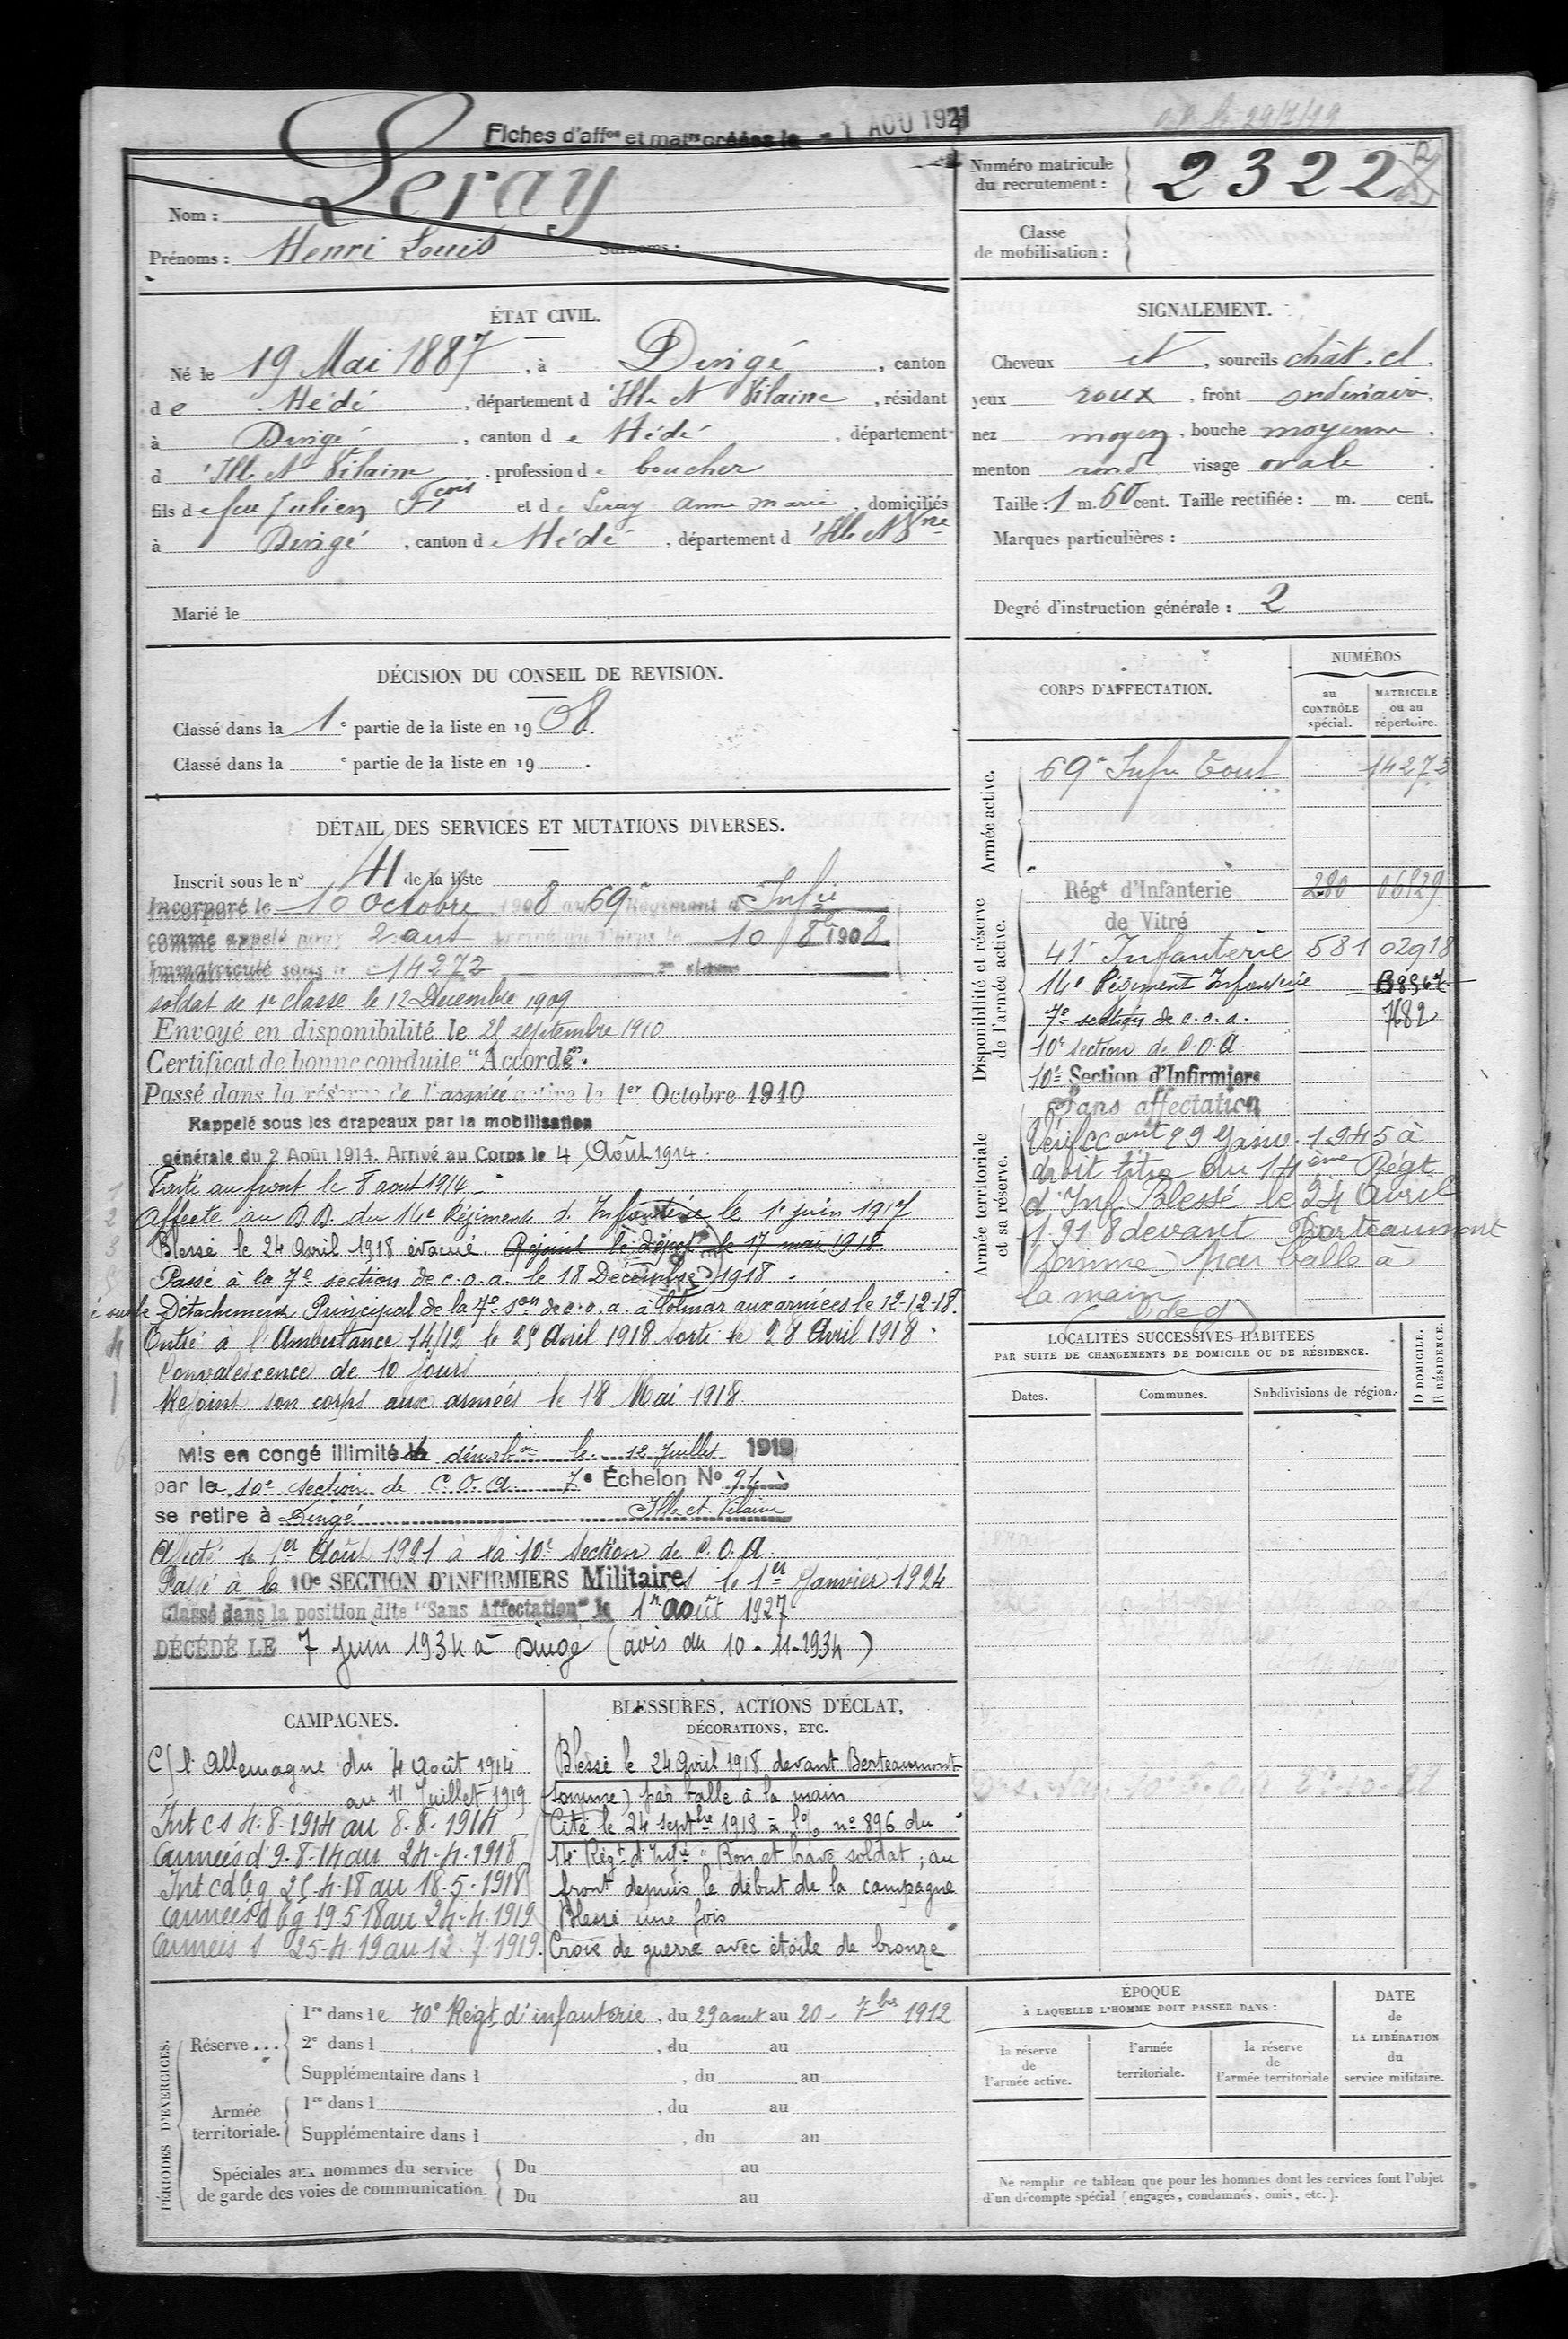 Fiches d'aff^on et mat^re créées le - 1 AOU 1921
Nom : Leray
Prénoms : Henri Louis Surnoms :
Numéro matricule du recrutement : 2322
Classe de mobilisation :
ÉTAT CIVIL.
Né le 19 Mai 1887, à Dingé, canton
de Hédé, département d'Ille et Vilaine, résidant
à Dingé, canton de Hédé, département
d'Ille et Vilaine, profession de boucher
fils de feu Julien F^cois et de Leray Anne Marie, domiciliés
à Dingé, canton de Hédé, département d'Ille et V^ne
Marié le
SIGNALEMENT.
Cheveux et, sourcils chât. cl.
yeux roux, front ordinaire,
nez moyen, bouche moyenne.
menton rond visage ovale.
Taille : 1 m. 60 cent. Taille rectifiée : m. cent.
Marques particulières :
Degré d'instruction générale : 2
DÉCISION DU CONSEIL DE REVISION.
Classé dans la 1e partie de la liste en 1908.
Classé dans la e partie de la liste en 19 .
DÉTAIL DES SERVICES ET MUTATIONS DIVERSES.
Inscrit sous le n° 41 de la liste
Incorporé le 10 Octobre 1908 au 69e Régiment d'Inf^ie
comme appelé pour 2 ans Arrivé au Corps le 10 8^bre 1908
Immatriculé sous le n° 14272
soldat de 1e classe le 12 Décembre 1909
Envoyé en disponibilité le 25 septembre 1910
Certificat de bonne conduite "Accordé".
Passé dans la réserve de l'armée active le 1er Octobre 1910
Rappelé sous les drapeaux par la mobilisation
générale du 2 Août 1914. Arrivé au Corps le 4 Août 1914.
Parti au front le 8 aout 1914.
Affecté au D.D. du 14e Régiment d'Infanterie le 1e juin 1917
Blessé le 24 Avril 1918 évacué. Rejoint le dépôt le 17 mai 1918.
Passé à la 7e section de c.o.a. le 18 Décembre 1918.
Détachement Principal de la 7e S^on de c.o.a. à Colmar aux armées le 12-12-18.
Entré à l'Ambulance 14/12 le 25 Avril 1918 sorti le 28 Avril 1918.
Convalescence de 10 jours
Rejoint son corps aux armées le 18 Mai 1918.
Mis en congé illimité de démob^on le 12 Juillet 1919
par la 10e section de C.O.A. 7e Échelon N° 91
se retire à Dingé Ille et Vilaine
Affecté le 1er Août 1921 à la 10e Section de C.O.A.
Passé à la 10e SECTION D'INFIRMIERS Militaires le 1er Janvier 1924
Classé dans la position dite "Sans Affectation" le 1er août 1927
DÉCÉDÉ LE 7 juin 1934 à Dingé (avis du 10-11-1934)
CORPS D'AFFECTATION.
NUMÉROS
au CONTRÔLE spécial.
MATRICULE ou au répertoire.
Armée active.
69e Inf^ie Toul 14272
Disponibilité et réserve de l'armée active.
Rég^t d'Infanterie 280 06529
de Vitré
41e Infanterie 581 02918
14e Régiment Infanterie
7e section de c.o.a. 7682
10e section de C.O.A.
10e Section d'Infirmiers
Sans affectation
Armée territoriale et sa réserve.
29 Janv. 1945 à
droit titre du 14ème Régt
d'Inf. Blessé le 24 Avril
1918 devant Berteaumont
(Somme) par balle à
la main
LOCALITÉS SUCCESSIVES HABITÉES
PAR SUITE DE CHANGEMENTS DE DOMICILE OU DE RÉSIDENCE.
Dates.
Communes.
Subdivisions de région.
D DOMICILE. R RÉSIDENCE.
CAMPAGNES.
C/ l'Allemagne du 4 Août 1914
au 11 Juillet 1919
Int c s 4.8.1914 au 8.8.1914
C armées d 9-8-14 au 24-4-1918
Int c d bg 25.4.18 au 18.5.1918
C armées d bg 19.5.18 au 24-4-1919
C armées s 25-4-19 au 12.7.1919.
BLESSURES, ACTIONS D'ÉCLAT,
DÉCORATIONS, ETC.
Blessé le 24 Avril 1918 devant Berteaumont
(Somme) par balle à la main
Cité le 24 sept^bre 1918 à l'o/ n° 896 du
14e Rég^t d'Inf^ie "Bon et brave soldat ; au
front depuis le début de la campagne
Blessé une fois
Croix de guerre avec étoile de bronze
PÉRIODES D'EXERCICES.
Réserve...
1re dans le 70e Régt d'infanterie, du 29 aout au 20 - 7^bre 1912
2e dans l , du au
Supplémentaire dans l , du au
Armée territoriale.
1re dans l , du au
Supplémentaire dans l , du au
Spéciales aux hommes du service de garde des voies de communication.
Du au
Du au
ÉPOQUE
À LAQUELLE L'HOMME DOIT PASSER DANS :
la réserve de l'armée active.
l'armée territoriale.
la réserve de l'armée territoriale
DATE de LA LIBÉRATION du service militaire.
Ne remplir ce tableau que pour les hommes dont les services font l'objet
d'un décompte spécial (engagés, condamnés, omis, etc.).